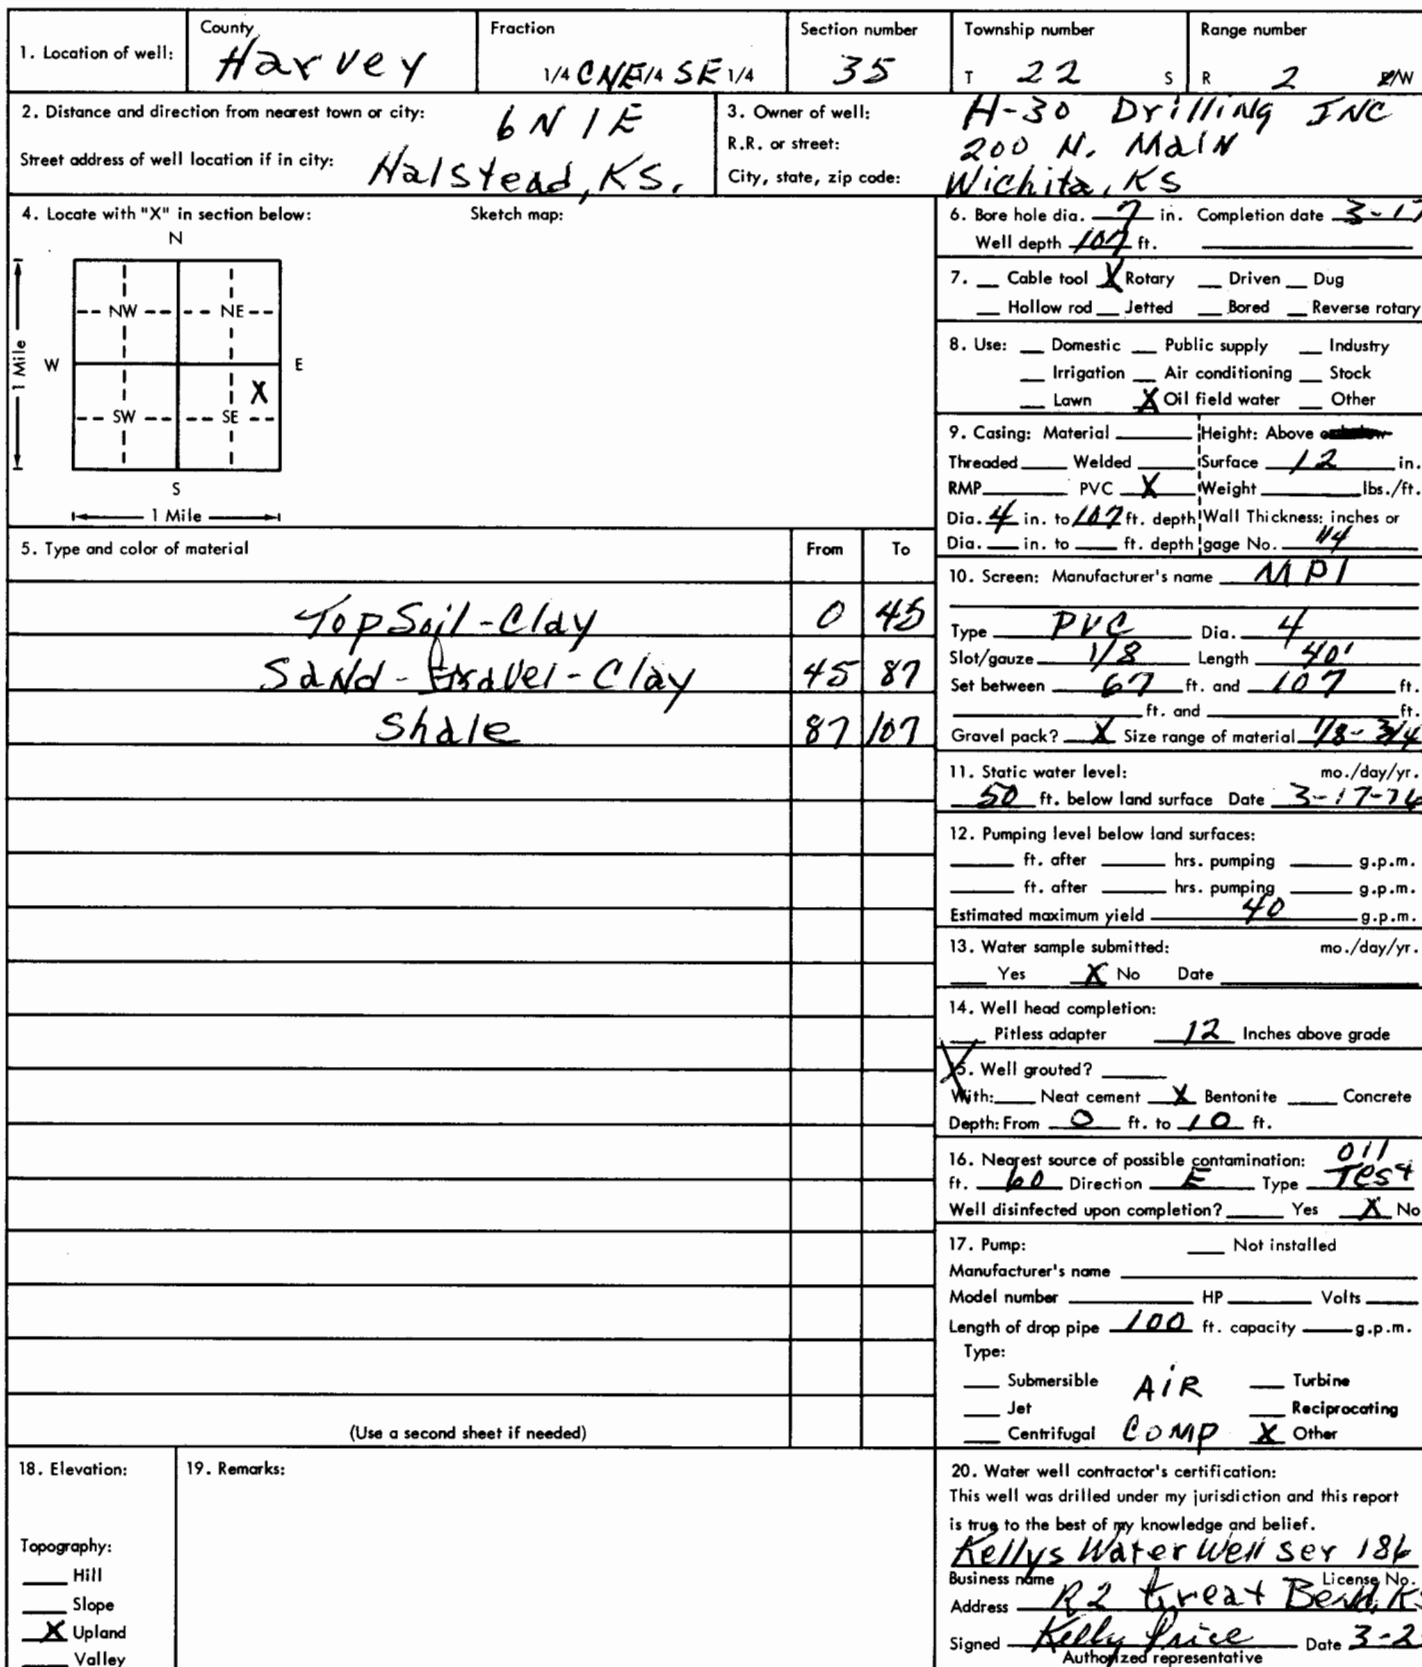 1. Location of well: County Harvey Fraction 1/4 CNE 1/4 SE 1/4 Section number 35 Township number T 22 S Range number R 2 E/W
2. Distance and direction from nearest town or city: 6N 1E
Street address of well location if in city: Halstead, KS.
3. Owner of well: H-30 Drilling INC
R.R. or street: 200 N. Main
City, state, zip code: Wichita, KS
4. Locate with "X" in section below: Sketch map:
N
NW NE
W E
1 Mile
X
SW SE
S
1 Mile
5. Type and color of material From To
Top Soil - Clay 0 45
Sand - Gravel - Clay 45 87
Shale 87 107
(Use a second sheet if needed)
6. Bore hole dia. 7 in. Completion date 3-17
Well depth 107 ft.
7. __ Cable tool X Rotary __ Driven __ Dug
__ Hollow rod __ Jetted __ Bored __ Reverse rotary
8. Use: __ Domestic __ Public supply __ Industry
__ Irrigation __ Air conditioning __ Stock
__ Lawn X Oil field water __ Other
9. Casing: Material ____ Height: Above
Threaded ____ Welded ____ Surface 12 in.
RMP ____ PVC X Weight ____ lbs./ft.
Dia. 4 in. to 107 ft. depth Wall Thickness: inches or
Dia. __ in. to __ ft. depth gage No. 1/4
10. Screen: Manufacturer's name MPI
Type PVC Dia. 4
Slot/gauze 1/8 Length 40'
Set between 67 ft. and 107 ft.
____ ft. and ____ ft.
Gravel pack? X Size range of material 1/8 - 3/4
11. Static water level: mo./day/yr.
50 ft. below land surface Date 3-17-76
12. Pumping level below land surfaces:
____ ft. after ____ hrs. pumping ____ g.p.m.
____ ft. after ____ hrs. pumping ____ g.p.m.
Estimated maximum yield 40 g.p.m.
13. Water sample submitted: mo./day/yr.
__ Yes X No Date ____
14. Well head completion:
__ Pitless adapter 12 Inches above grade
X 15. Well grouted? ____
With: __ Neat cement X Bentonite __ Concrete
Depth: From 0 ft. to 10 ft.
16. Nearest source of possible contamination: oil
ft. 60 Direction E Type Test
Well disinfected upon completion? __ Yes X No
17. Pump: __ Not installed
Manufacturer's name ____
Model number ____ HP ____ Volts ____
Length of drop pipe 100 ft. capacity ____ g.p.m.
Type:
__ Submersible AIR __ Turbine
__ Jet __ Reciprocating
__ Centrifugal COMP X Other
18. Elevation:
Topography:
__ Hill
__ Slope
X Upland
__ Valley
19. Remarks:
20. Water well contractor's certification:
This well was drilled under my jurisdiction and this report
is true to the best of my knowledge and belief.
Kellys Water Well Ser 186
Business name License No.
Address R2 Great Bend, KS
Signed Kelly Price Date 3-2
Authorized representative